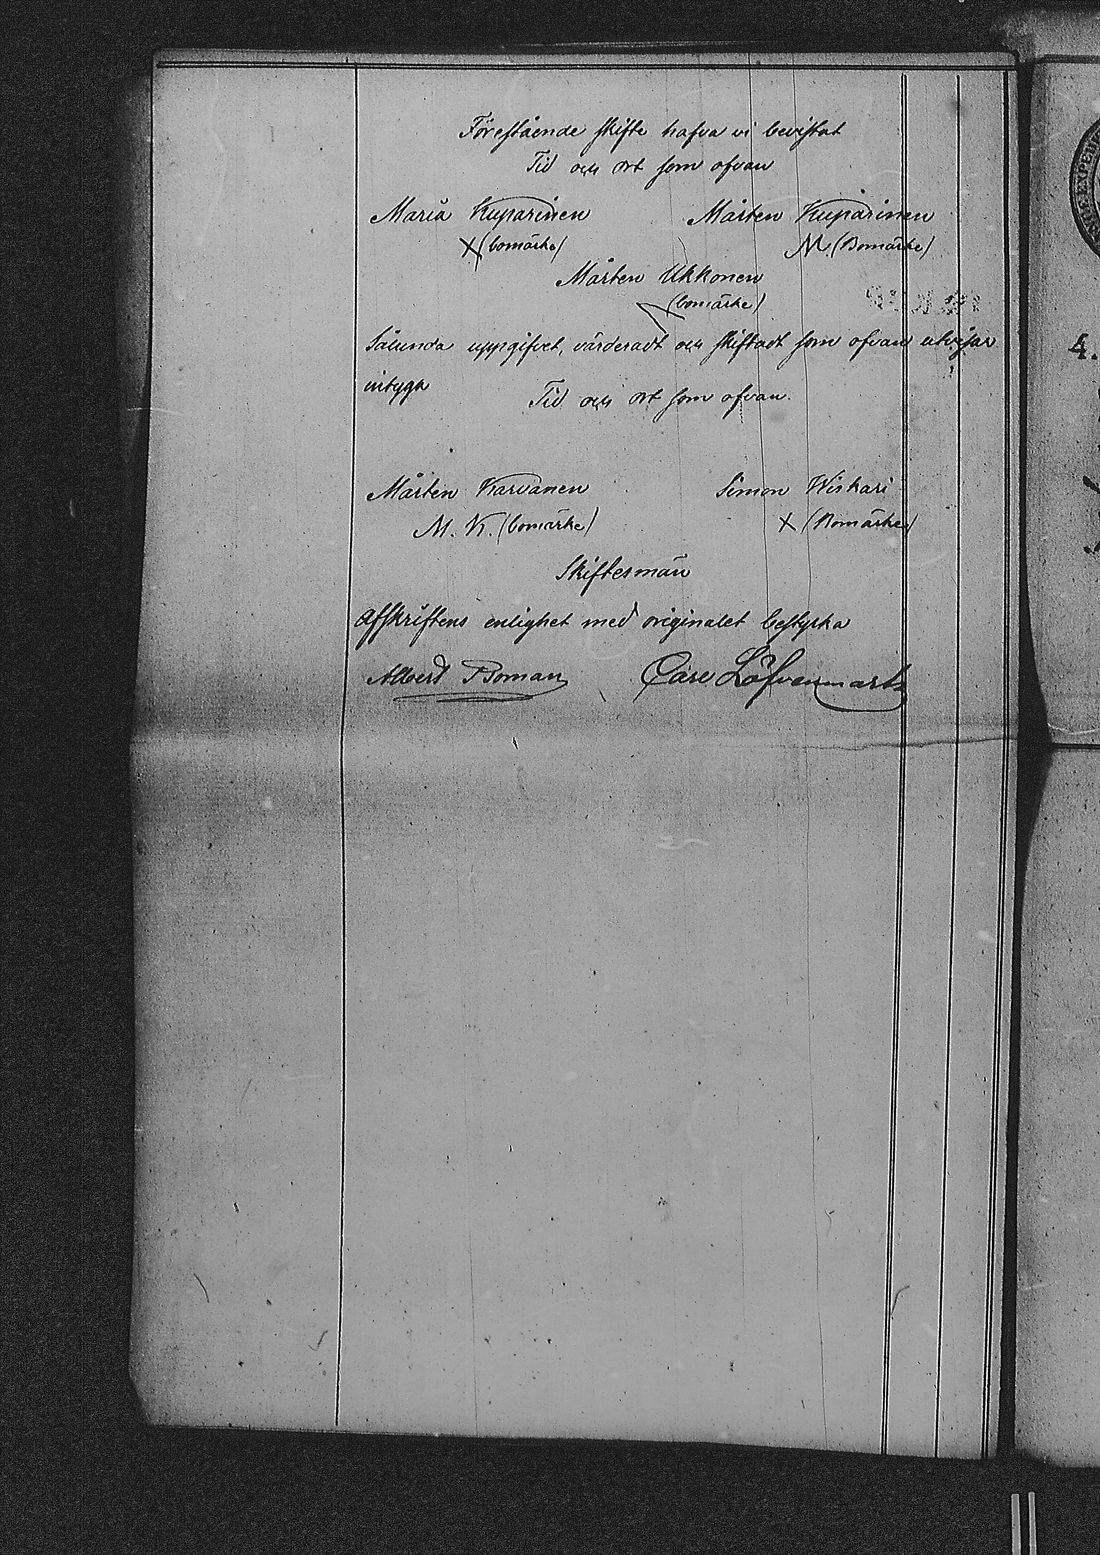 Förestående skifte hafva vi bevistat
Tid och ort som ofvan
Maria Kuparinen Mårten Kuparinen
X (bomärke) M. (Bomärke)
Mårten Ukkonen
(bomärke)
Sålunda uppgifvet, värderadt och skiftadt som ofvan utvisar
intyga
Tid och ort som ofvan.
Mårten Karvanen Simon Wiskari
M. K. (bomärke) X (Bomärke)
Skiftesmän
Afskriftens enlighet med originalet bestyrka
Albert Boman Löfvenmark
4.